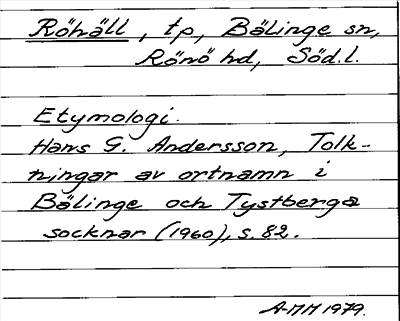 Röhäll, tp, Bälinge sn,
Rönö hd, Söd.l.
Etymologi.
Hans G. Andersson, Tolk-
ningar av ortnamn i
Bälinge och Tystberga
socknar (1960), s. 82.
A-MM 1979.